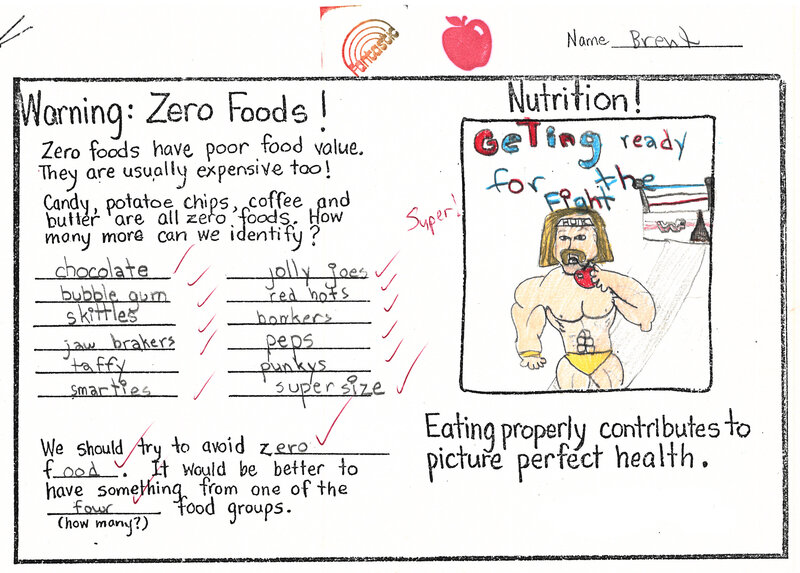 Fantastic
Name Brent
Warning: Zero Foods!
Zero foods have poor food value.
They are usually expensive too!
Candy, potatoe chips, coffee and
butter are all zero foods. How
many more can we identify?
chocolate
bubble gum
skittles
jaw brakers
taffy
smarties
jolly joes
red hots
bonkers
peps
punkys
super size
We should try to avoid zero
food. It would be better to
have something from one of the
four food groups.
(how many?)
Super!
Nutrition!
GeTing ready
for the
Fight
HULK
Eating properly contributes to
picture perfect health.